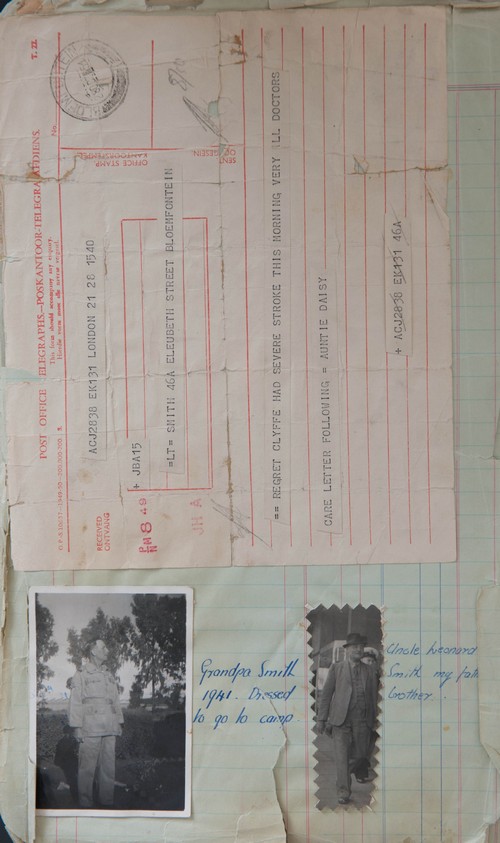 POST OFFICE TELEGRAPHS.—POSKANTOOR-TELEGRAAFDIENS.
T. 22.
This form should accompany any enquiry.
Hierdie vorm moet alle navrae vergesel.
No.
OFFICE STAMP
KANTOORSTEMPEL
RECEIVED
ONTVANG
SENT
ACJ2838 EK131 LONDON 21 28 1540
+ JBA15
=LT= SMITH 46A ELEUBETH STREET BLOEMFONTEIN
PM 8 49
JH A
== REGRET CLYFFE HAD SEVERE STROKE THIS MORNING VERY ILL DOCTORS
CARE LETTER FOLLOWING = AUNTIE DAISY
+ ACJ2838 EK131 46A
Grandpa Smith
1941. Dressed
to go to camp.
Uncle Leonard
Smith my
brother.